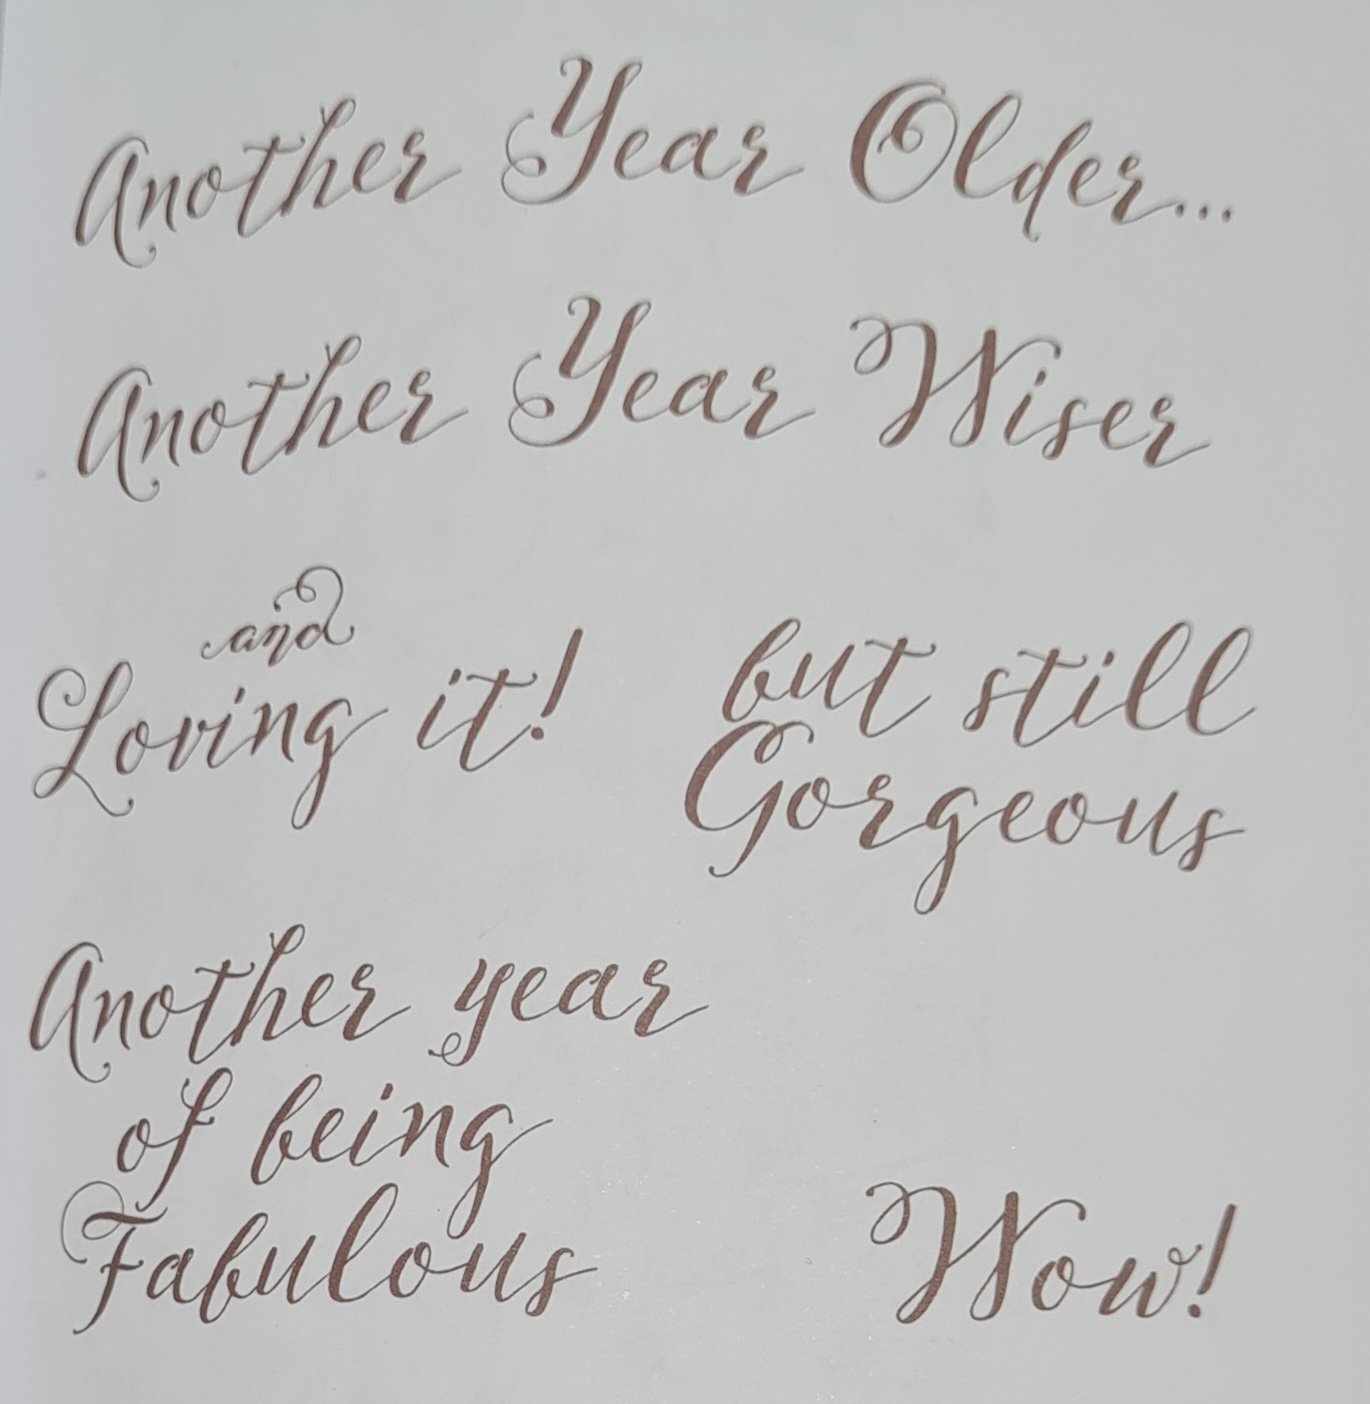 Another Year Older...
Another Year Wiser
and
Loving it!
but still
Gorgeous
Another year
of being
Fabulous
Wow!